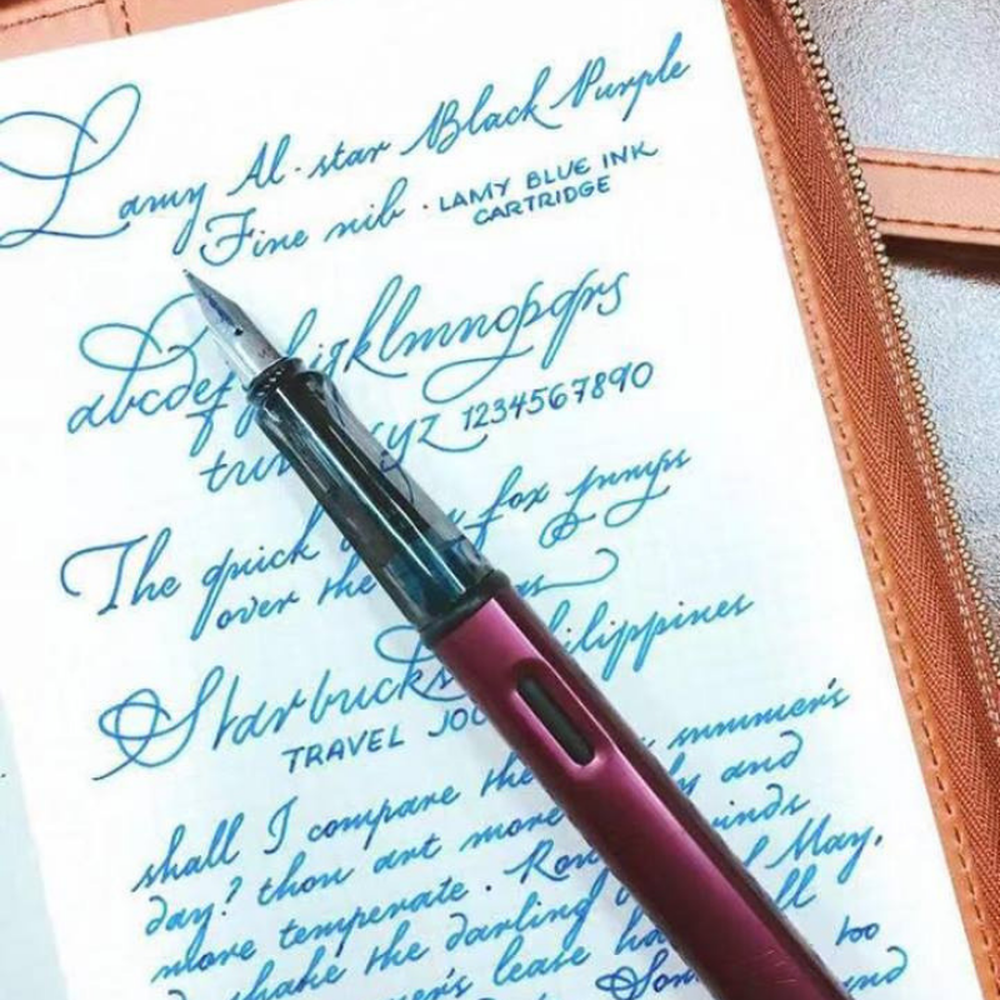 Lamy Al-star Black Purple
Fine nib · LAMY BLUE INK
CARTRIDGE
abcdef ijklmnopqrs
tuv xyz 1234567890
The quick fox jumps
over the
Starbucks Philippines
TRAVEL
shall I compare the summer's
day? thou art more and
more temperate. winds
shake the darling May,
lease all
too